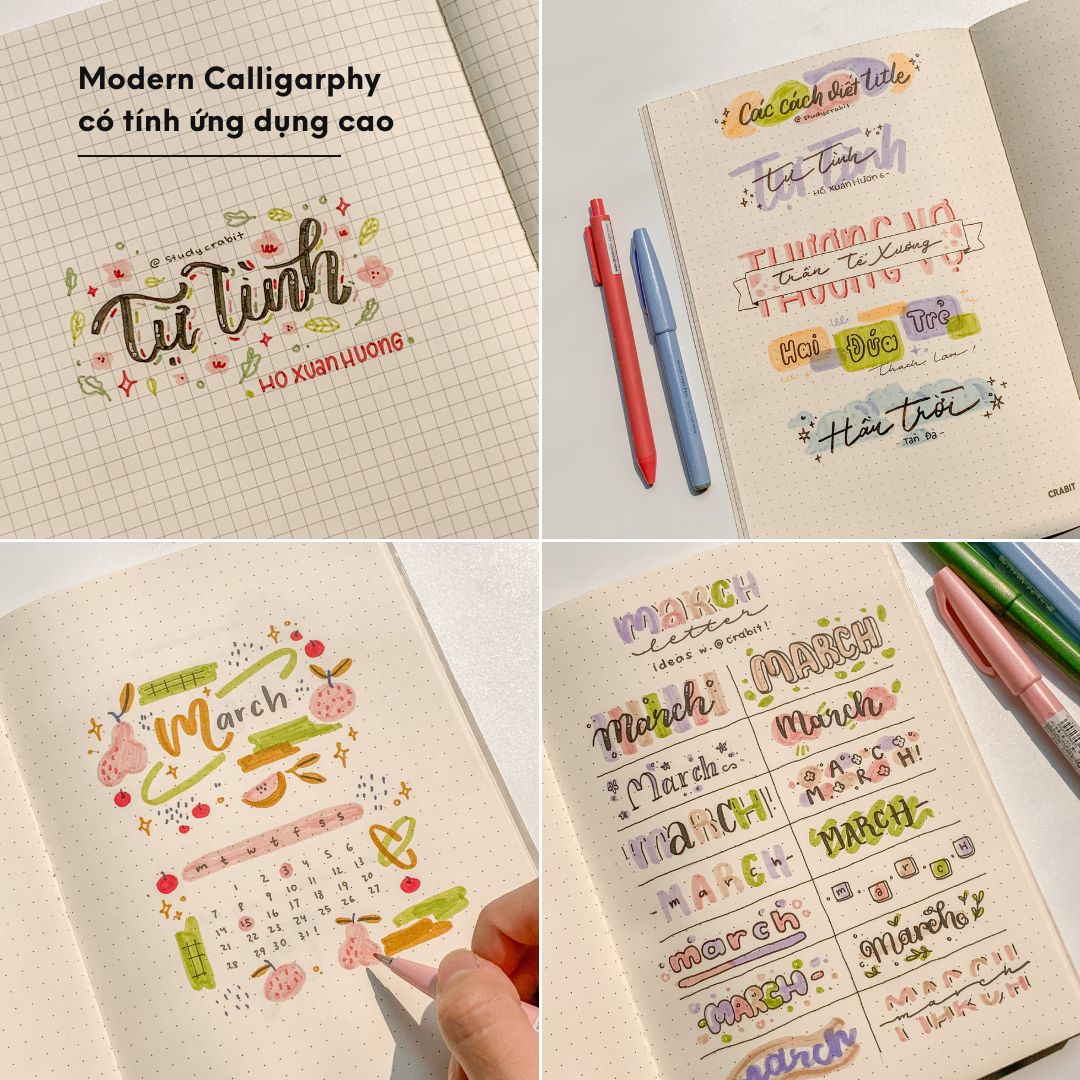 Modern Calligarphy
có tính ứng dụng cao
@ studycrabit
Tự Tình
HO XUAN HUONG
Các cách viết title
@ studycrabit
Tự Tình
Tự Tình
- Hồ Xuân Hương -
THƯƠNG VỢ
Trần Tế Xương
Hai Đứa Trẻ
Thạch Lam
Hầu trời
- Tản Đà -
CRABIT
March
m t w t f s s
1 2 3 4 5 6
7 8 9 10 11 12 13
14 15 16 17 18 19 20
21 22 23 24 25 26 27
28 29 30 31!
MARCH
letter
ideas w. @crabit!
March
MARCH
March
March
March
MARCH!
MARCH!
MARCH
-March-
march
march
March
MARCH
march
march